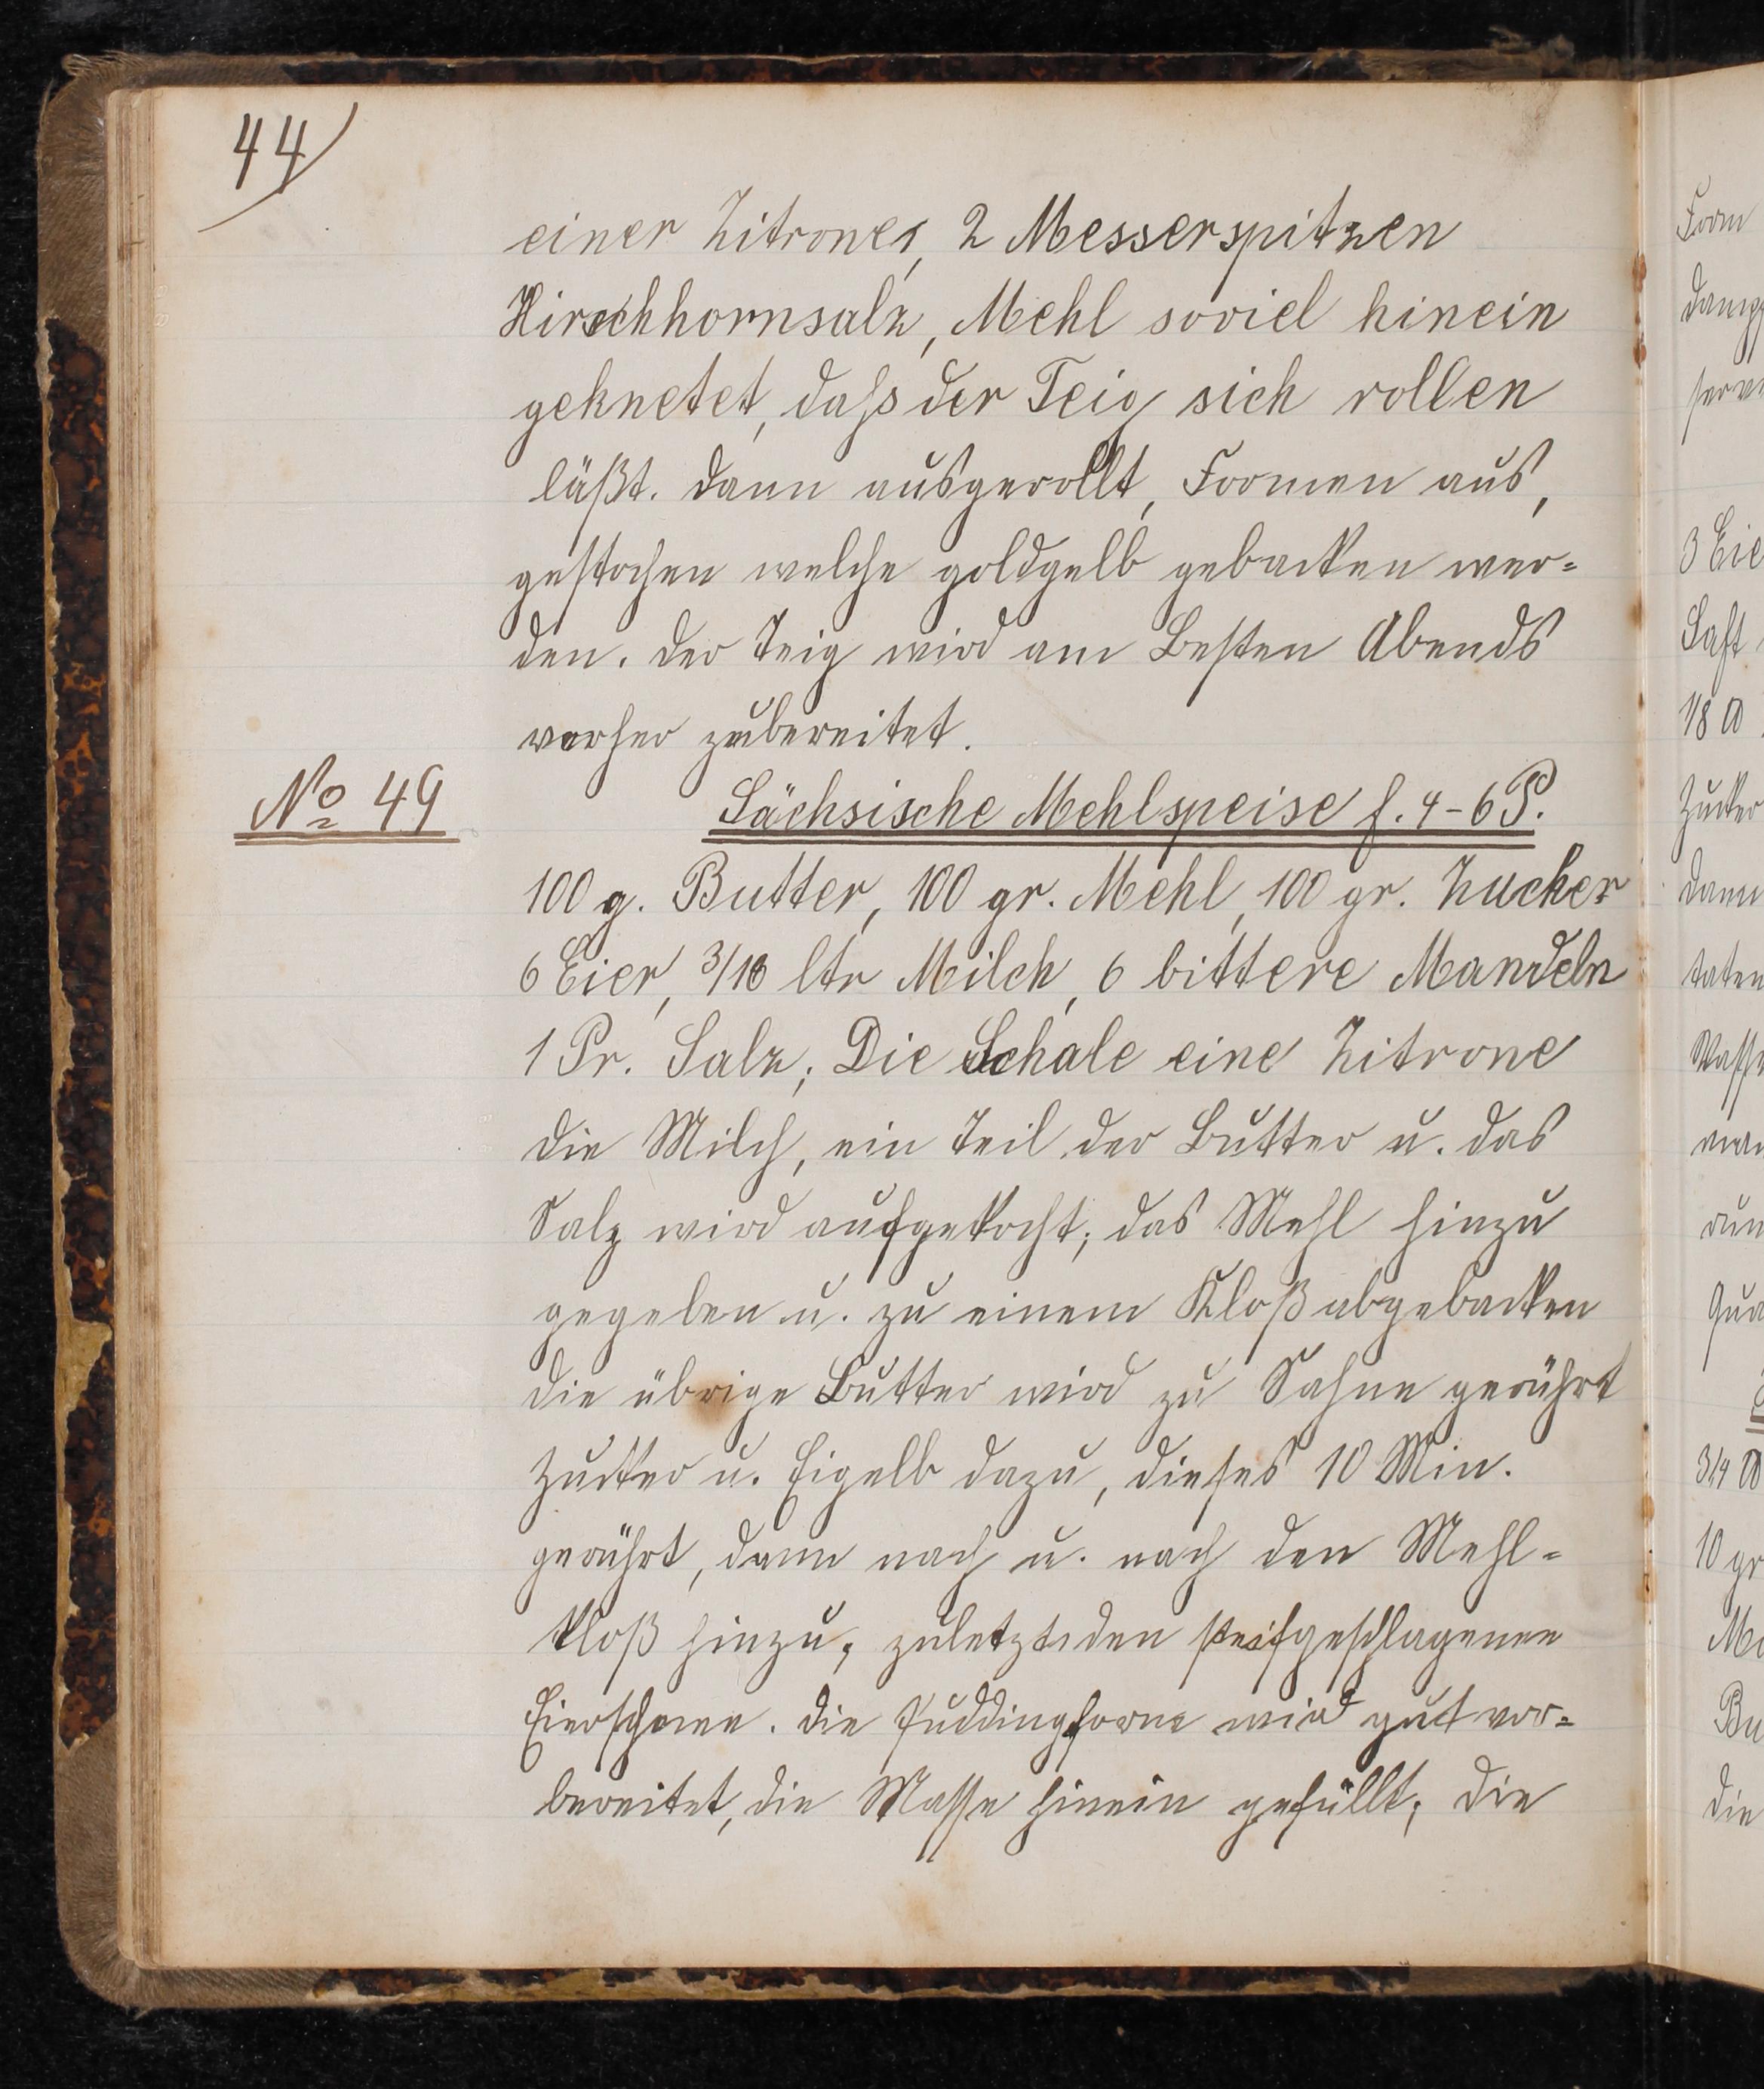 44
einer Zitrone, 2 Messerspitzen
Hirschhornsalz, Mehl soviel hinein
geknetet, daſs der Teig sich rollen
läßt. Dann ausgerollt, Formen aus,
gestochen welche goldgelb gebacken wer=
den. Der Teig wird am Besten Abends
vorher zubereitet.
No 49
Sächsische Mehlspeise f. 4-6 P.
100 g. Butter, 100 gr. Mehl, 100 gr. Zucker
6 Eier, 3/16 ltr Milch, 6 bittere Mandeln
1 Pr. Salz; Die Schale eine Zitrone
Die Milch, ein Teil der Butter u. das
Salz wird aufgekocht; das Mehl hinzu
gegeben u. zu einem Kloß abgebacken
die übrige Butter wird zu Sahne gerührt
Zucker u. Eigelb dazu, dieses 10 Min.
gerührt, dann nach u. nach den Mehl=
kloß hinzu, zuletzt den steifgeschlagenen
Eierschnee. Die Puddingform wird gut vor=
bereitet, die Masse hinein gefüllt; die
Form
3 Eie
Saft
1/8
Zucker
dann
taten
Wasse
10 gr
die